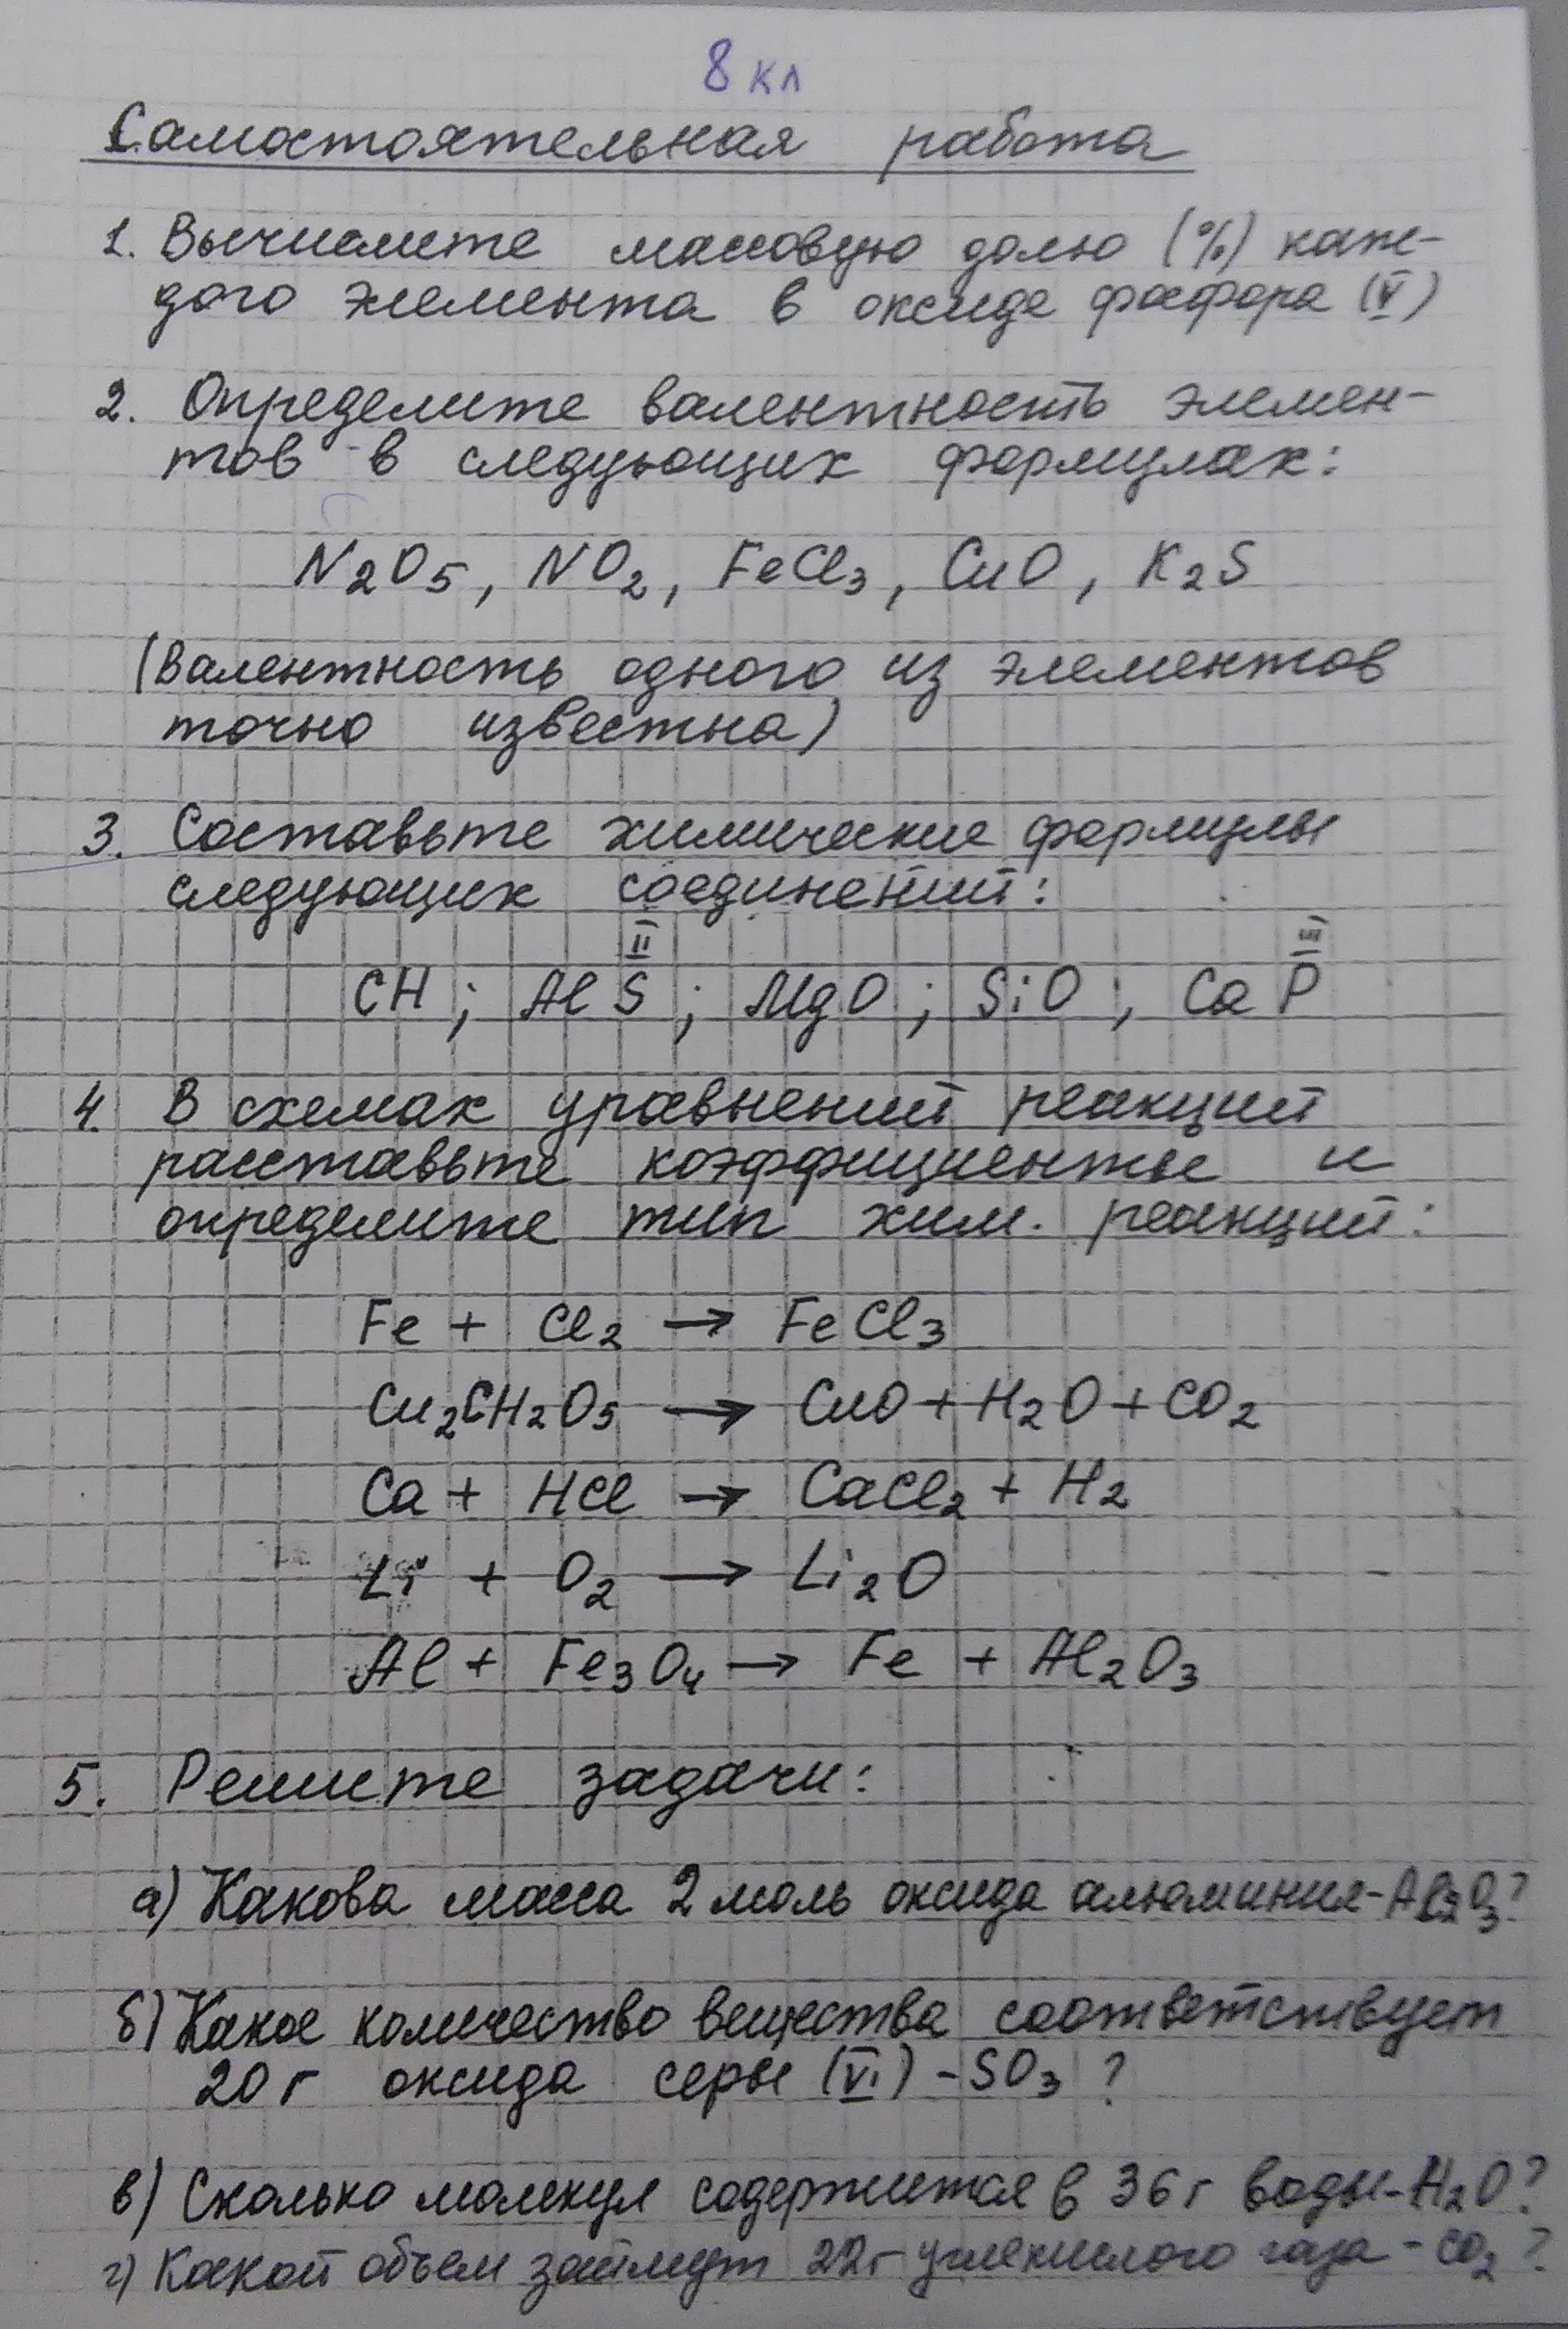 8 кл
Самостоятельная работа
1. Вычислите массовую долю (%) каж-
дого элемента в оксиде фосфора (V)
2. Определите валентность элемен-
тов в следующих формулах:
N₂O₅, NO₂, FeCl₃, CuO, K₂S
(Валентность одного из элементов
точно известна)
3. Составьте химические формулы
следующих соединений:
II III
CH; AlS; MgO; SiO; CaP
4. В схемах уравнений реакций
расставьте коэффициенты и
определите тип хим. реакций:
Fe + Cl₂ → FeCl₃
Cu₂CH₂O₅ → CuO + H₂O + CO₂
Ca + HCl → CaCl₂ + H₂
Li + O₂ → Li₂O
Al + Fe₃O₄ → Fe + Al₂O₃
5. Решите задачи:
а) Какова масса 2 моль оксида алюминия - Al₂O₃?
б) Какое количество вещества соответствует
20 г оксида серы (VI) - SO₃?
в) Сколько молекул содержится в 36 г воды - H₂O?
г) Какой объем займут 22 г углекислого газа - CO₂?